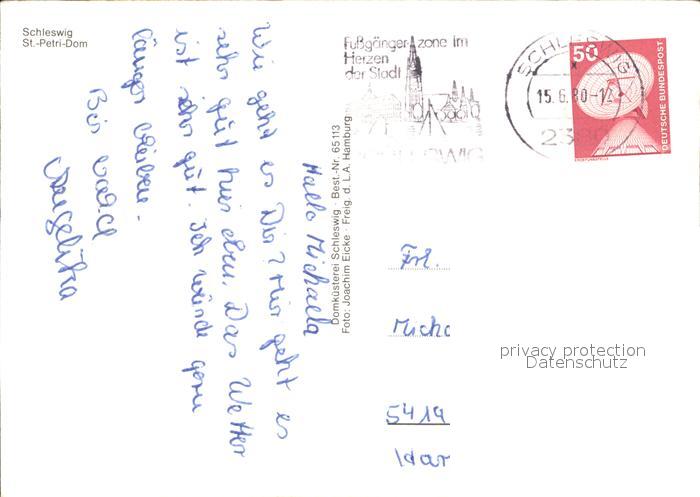 Schleswig
St.-Petri-Dom
Hallo Michaela
Wie geht es Dir? Mir geht es
sehr gut hier oben. Das Wetter
ist sehr gut. Ich würde gern
länger bleiben.
Bis bald
Angelika
Domküsterei Schleswig · Best.-Nr. 65113
Foto: Joachim Eicke · Freig. d. L.A. Hamburg
Fußgängerzone im
Herzen
der Stadt
SCHLESWIG
SCHLESWIG
15.6.80-12
2380
50
DEUTSCHE BUNDESPOST
ERDEFUNKSTELLE
Frl.
Micha
5414
Idar
privacy protection
Datenschutz